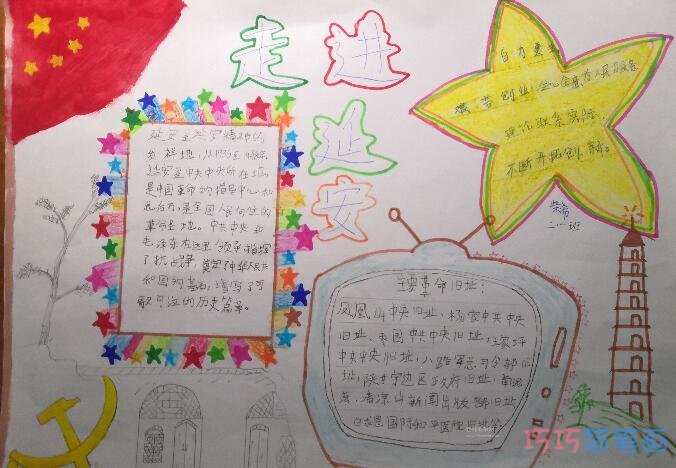 走进
延
安
延安是延安精神的
发祥地,从1935至1948年,
延安是中共中央所在地,
是中国革命的指导中心和
总后方,是全国人民向往的
革命圣地。中共中央和
毛泽东在这里领导指挥
了抗战争,奠定了中华人民共
和国的基石,谱写了可
歌可泣的历史篇章。
自力更生
艰苦创业,全心全意为人民服务
理论联系实际,
不断开拓创新。
二一班
主要革命旧址:
凤凰山中央旧址,杨家岭中共中央
旧址,枣园中共中央旧址,王家坪
中共中央旧址,八路军总司令部旧
址,陕甘宁边区政府旧址,南泥
湾,清凉山新闻出版部旧址
白求恩国际和平医院旧址等
巧巧简笔画